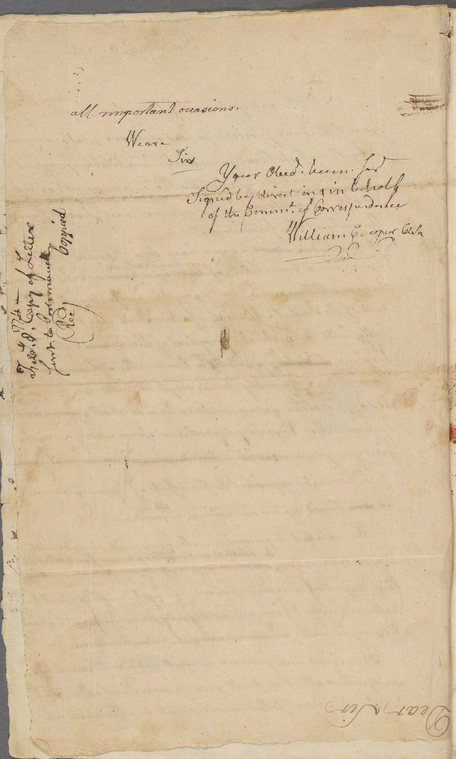 all important occasions.
We are
Sirs
Your Obedt. hum. Sert
Signed by direction & in behalf
of the Commte. of Correspondence
William Cooper Clerk
Copy of Letter
sent to Portsmouth
Recd
Coppied
Dear Sir